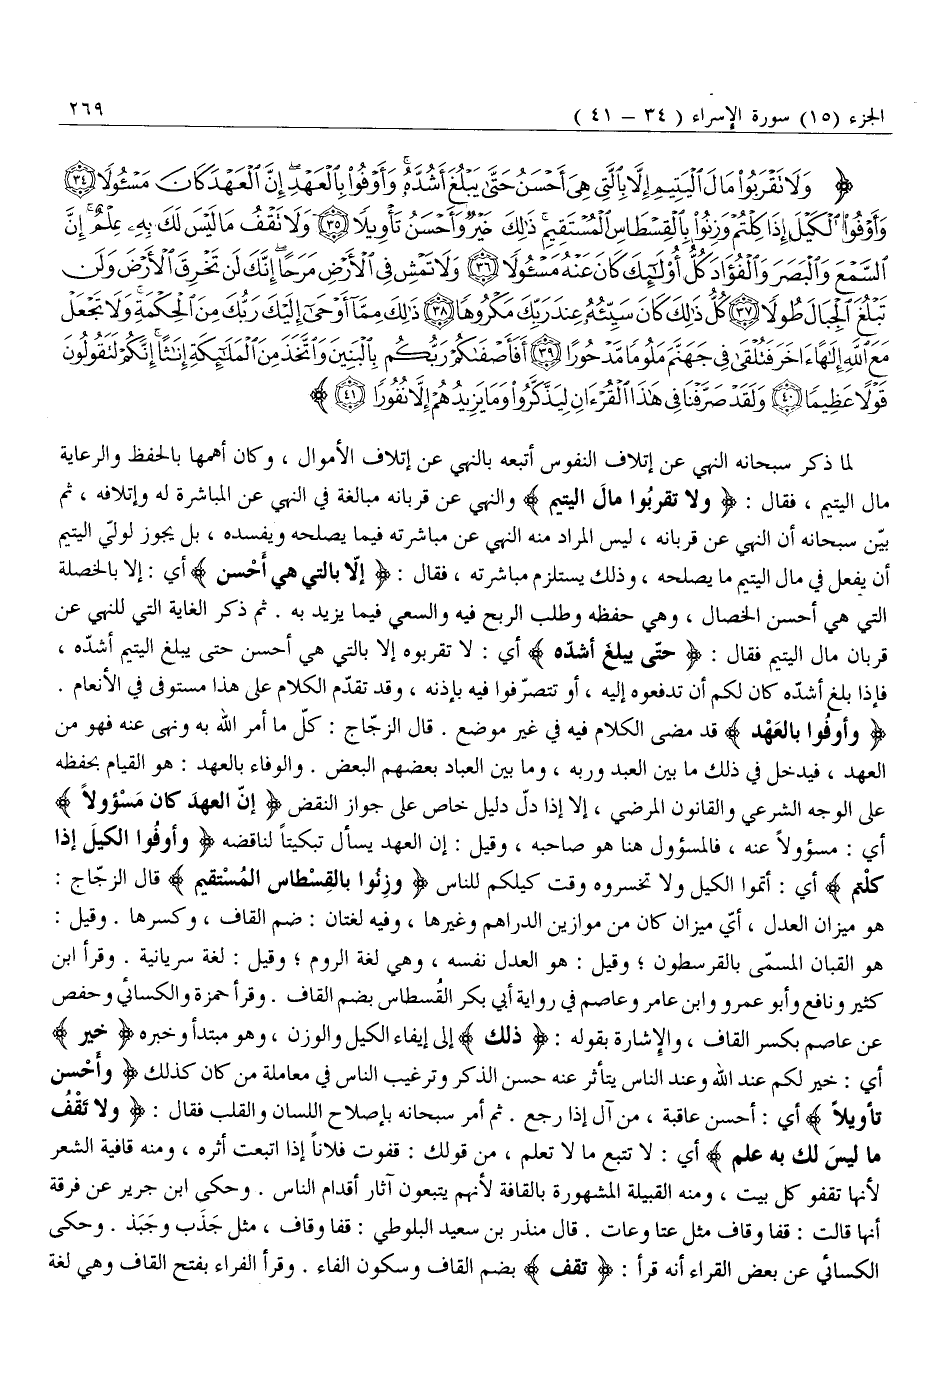 الجزء (١٥) سورة الإسراء ( ٣٤ – ٤١ ) ٢٦٩
﴿ وَلَا تَقْرَبُوا۟ مَالَ ٱلْيَتِيمِ إِلَّا بِٱلَّتِى هِىَ أَحْسَنُ حَتَّىٰ يَبْلُغَ أَشُدَّهُۥ ۚ وَأَوْفُوا۟ بِٱلْعَهْدِ ۖ إِنَّ ٱلْعَهْدَ كَانَ مَسْـُٔولًا ﴿٣٤﴾
وَأَوْفُوا۟ ٱلْكَيْلَ إِذَا كِلْتُمْ وَزِنُوا۟ بِٱلْقِسْطَاسِ ٱلْمُسْتَقِيمِ ۚ ذَٰلِكَ خَيْرٌ وَأَحْسَنُ تَأْوِيلًا ﴿٣٥﴾ وَلَا تَقْفُ مَا لَيْسَ لَكَ بِهِۦ عِلْمٌ ۚ إِنَّ
ٱلسَّمْعَ وَٱلْبَصَرَ وَٱلْفُؤَادَ كُلُّ أُو۟لَٰٓئِكَ كَانَ عَنْهُ مَسْـُٔولًا ﴿٣٦﴾ وَلَا تَمْشِ فِى ٱلْأَرْضِ مَرَحًا ۖ إِنَّكَ لَن تَخْرِقَ ٱلْأَرْضَ وَلَن
تَبْلُغَ ٱلْجِبَالَ طُولًا ﴿٣٧﴾ كُلُّ ذَٰلِكَ كَانَ سَيِّئُهُۥ عِندَ رَبِّكَ مَكْرُوهًا ﴿٣٨﴾ ذَٰلِكَ مِمَّآ أَوْحَىٰٓ إِلَيْكَ رَبُّكَ مِنَ ٱلْحِكْمَةِ ۗ وَلَا تَجْعَلْ
مَعَ ٱللَّهِ إِلَٰهًا ءَاخَرَ فَتُلْقَىٰ فِى جَهَنَّمَ مَلُومًا مَّدْحُورًا ﴿٣٩﴾ أَفَأَصْفَىٰكُمْ رَبُّكُم بِٱلْبَنِينَ وَٱتَّخَذَ مِنَ ٱلْمَلَٰٓئِكَةِ إِنَٰثًا ۚ إِنَّكُمْ لَتَقُولُونَ
قَوْلًا عَظِيمًا ﴿٤٠﴾ وَلَقَدْ صَرَّفْنَا فِى هَٰذَا ٱلْقُرْءَانِ لِيَذَّكَّرُوا۟ وَمَا يَزِيدُهُمْ إِلَّا نُفُورًا ﴿٤١﴾ ﴾
لما ذكر سبحانه النهي عن إتلاف النفوس أتبعه بالنهي عن إتلاف الأموال ، وكان أهمها بالحفظ والرعاية
مال اليتيم ، فقال : ﴿ ولا تقربُوا مالَ اليتيم ﴾ والنهي عن قربانه مبالغة في النهي عن المباشرة له وإتلافه ، ثم
بيّن سبحانه أن النهي عن قربانه ، ليس المراد منه النهي عن مباشرته فيما يصلحه ويفسده ، بل يجوز لوليّ اليتيم
أن يفعل في مال اليتيم ما يصلحه ، وذلك يستلزم مباشرته ، فقال : ﴿ إلّا بالتي هي أَحْسن ﴾ أي : إلا بالخصلة
التي هي أحسن الخصال ، وهي حفظه وطلب الربح فيه والسعي فيما يزيد به . ثم ذكر الغاية التي للنهي عن
قربان مال اليتيم فقال : ﴿ حتّى يبلغ أشدّه ﴾ أي : لا تقربوه إلا بالتي هي أحسن حتى يبلغ اليتيم أشدّه ،
فإذا بلغ أشدّه كان لكم أن تدفعوه إليه ، أو تتصرّفوا فيه بإذنه ، وقد تقدّم الكلام على هذا مستوفى في الأنعام .
﴿ وأوفُوا بالعَهْد ﴾ قد مضى الكلام فيه في غير موضع . قال الزجّاج : كلّ ما أمر الله به ونهى عنه فهو من
العهد ، فيدخل في ذلك ما بين العبد وربه ، وما بين العباد بعضهم البعض . والوفاء بالعهد : هو القيام بحفظه
على الوجه الشرعي والقانون المرضي ، إلا إذا دلّ دليل خاص على جواز النقض ﴿ إنّ العهدَ كان مَسْؤولاً ﴾
أي : مسؤولاً عنه ، فالمسؤول هنا هو صاحبه ، وقيل : إن العهد يسأل تبكيتاً لناقضه ﴿ وأوفُوا الكيلَ إذا
كلْتم ﴾ أي : أتموا الكيل ولا تخسروه وقت كيلكم للناس ﴿ وزِنُوا بالقِسْطاس المُسْتقيم ﴾ قال الزجّاج :
هو ميزان العدل ، أيّ ميزان كان من موازين الدراهم وغيرها ، وفيه لغتان : ضم القاف ، وكسرها . وقيل :
هو القبان المسمّى بالقرسطون ؛ وقيل : هو العدل نفسه ، وهي لغة الروم ؛ وقيل : لغة سريانية . وقرأ ابن
كثير ونافع وأبو عمرو وابن عامر وعاصم في رواية أبي بكر القُسطاس بضم القاف . وقرأ حمزة والكسائي وحفص
عن عاصم بكسر القاف ، والإشارة بقوله : ﴿ ذلك ﴾ إلى إيفاء الكيل والوزن ، وهو مبتدأ وخبره ﴿ خير ﴾
أي : خير لكم عند الله وعند الناس يتأثر عنه حسن الذكر وترغيب الناس في معاملة من كان كذلك ﴿ وأَحْسن
تأويلاً ﴾ أي : أحسن عاقبة ، من آل إذا رجع . ثم أمر سبحانه بإصلاح اللسان والقلب فقال : ﴿ ولا تَقْفُ
ما ليسَ لك به علم ﴾ أي : لا تتبع ما لا تعلم ، من قولك : قفوت فلاناً إذا اتبعت أثره ، ومنه قافية الشعر
لأنها تقفو كل بيت ، ومنه القبيلة المشهورة بالقافة لأنهم يتبعون آثار أقدام الناس . وحكى ابن جرير عن فرقة
أنها قالت : قفا وقاف مثل عتا وعات . قال منذر بن سعيد البلوطي : قفا وقاف ، مثل جَذَب وجَبَذ . وحكى
الكسائي عن بعض القراء أنه قرأ : ﴿ تقف ﴾ بضم القاف وسكون الفاء . وقرأ الفراء بفتح القاف وهي لغة